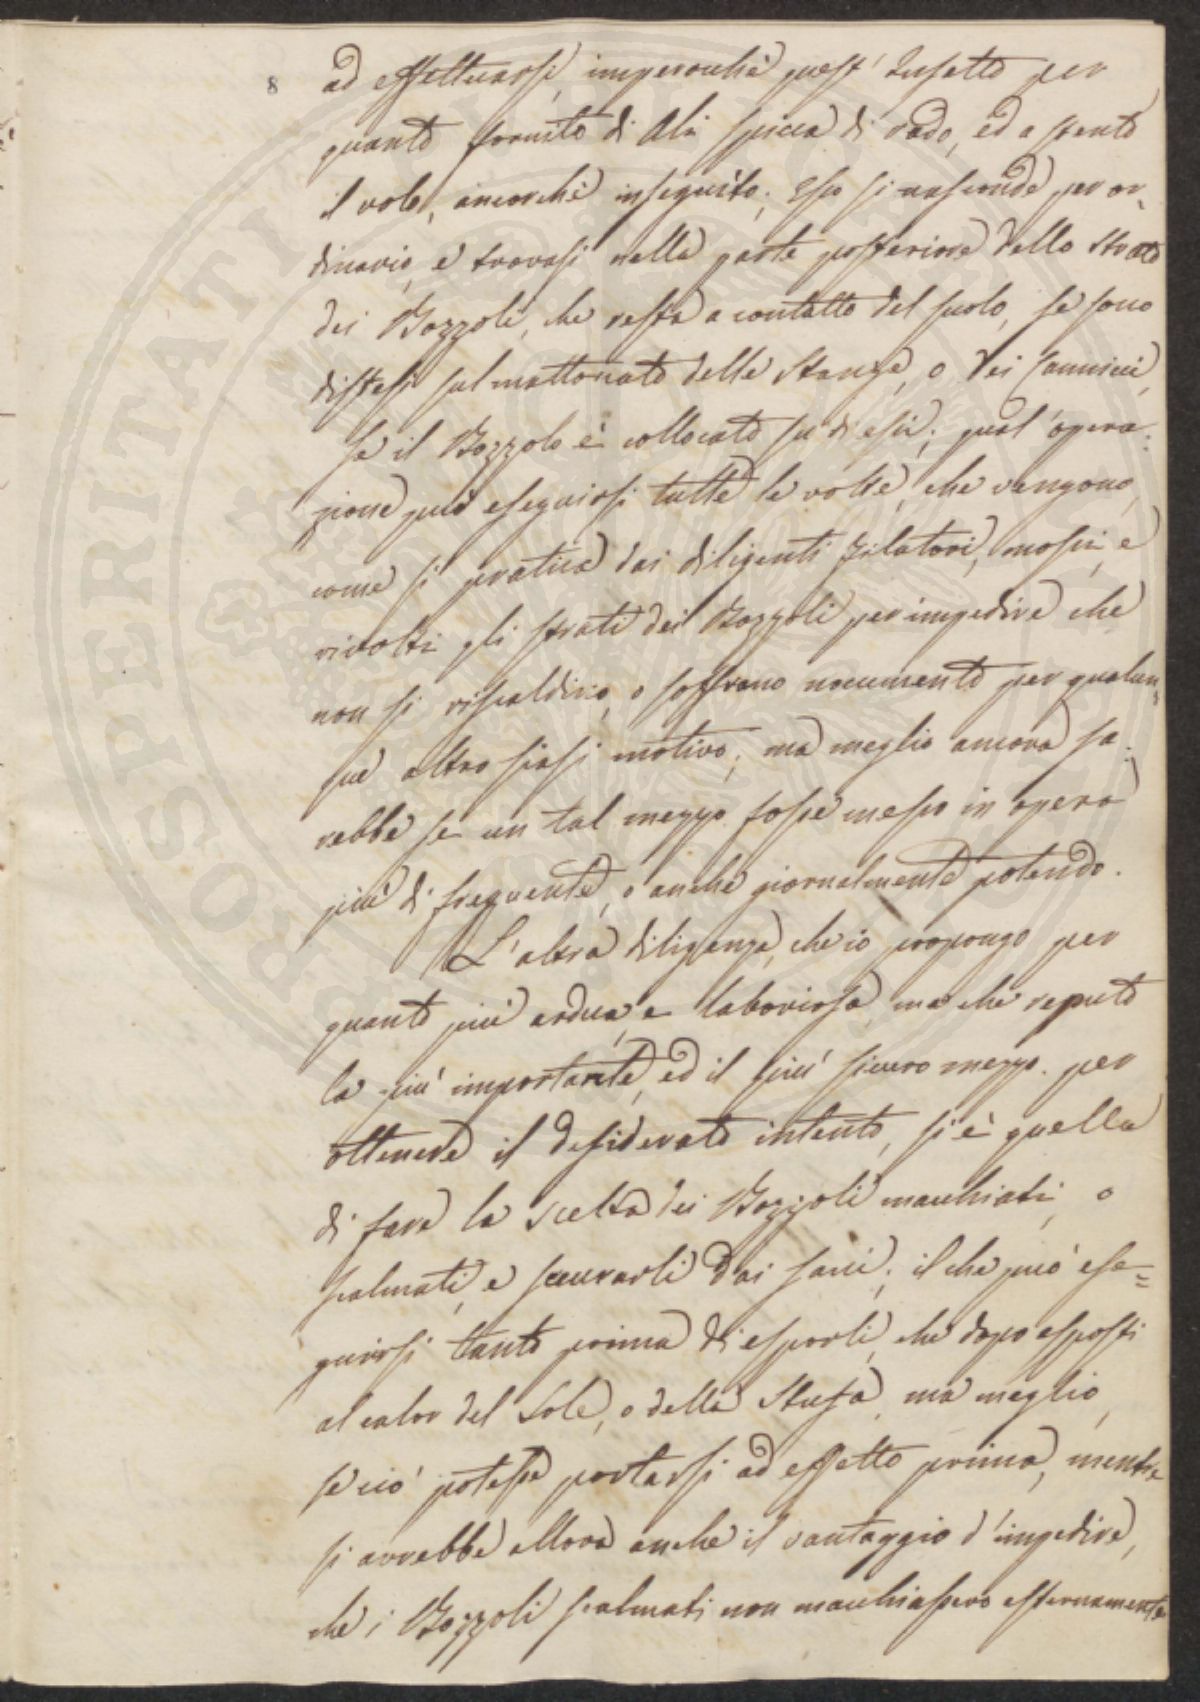 8
ad effettuarsi, imperocchè quest'Insetto per
quanto fornito di Ali spicca di rado, ed a stento
il volo, ancorchè inseguito; Esso si nasconde per or-
dinario, e trovasi nella parte posteriore dello strato
dei Bozzoli, che resta a contatto del suolo, se sono
distesi sul mattonato delle Stanze, o dei Cannicci,
se il Bozzolo è collocato su di essi; qual'opera-
zione può eseguirsi tutte le volte, che vengono,
come si pratica dai diligenti Filatori, mossi, e
rivolti gli strati dei Bozzoli per impedire che
non si riscaldino, o soffrano nocumento per qualun-
que altro siasi motivo; ma meglio ancora sa-
rebbe se un tal mezzo fosse messo in opera
più di frequente, o anche giornalmente potendo.
L'altra diligenza, che io propongo per
quanto più ardua, e laboriosa, ma che reputo
la più importante, ed il più sicuro mezzo per
ottenere il desiderato intento, si è quella
di fare la scelta dei Bozzoli macchiati, o
scalmati, e scevrarli dai sani; il che può ese=
guirsi tanto prima di esporli, che dopo esposti
al calor del Sole, o della Stufa, ma meglio,
se ciò potesse portarsi ad effetto prima, mentre
si avrebbe allora anche il vantaggio d'impedire,
che i Bozzoli scalmati non macchiassero esternamente
PROSPERITATI